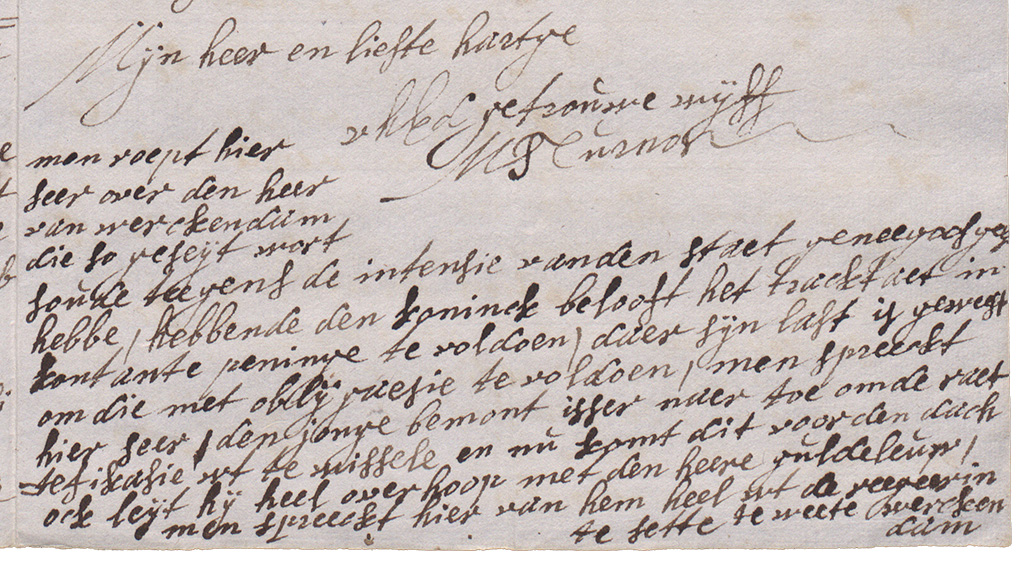 Mijn heer en liefste hartge
uhEd getrouwe wijff
M Turnor
men roept hier
seer over den heer
van werckendam
die so geseijt wort
soude teegens de intensie vanden staet
hebbe, hebbende den koninck belooft het tracktaet in
kontante peninge te voldoen, daer sijn last is geweest
om die met oblijgaesie te voldoen, men spreeckt
hier seer, den jonge bemont isser naer toe omde raet
tefikasie wt te wissele en nu komt dit voorden dach
ock leijt hij heel overhoop met den heere guldeleuw,
men spreeckt hier van hem heel wt de reegerin
te sette te weete Wercken
dam